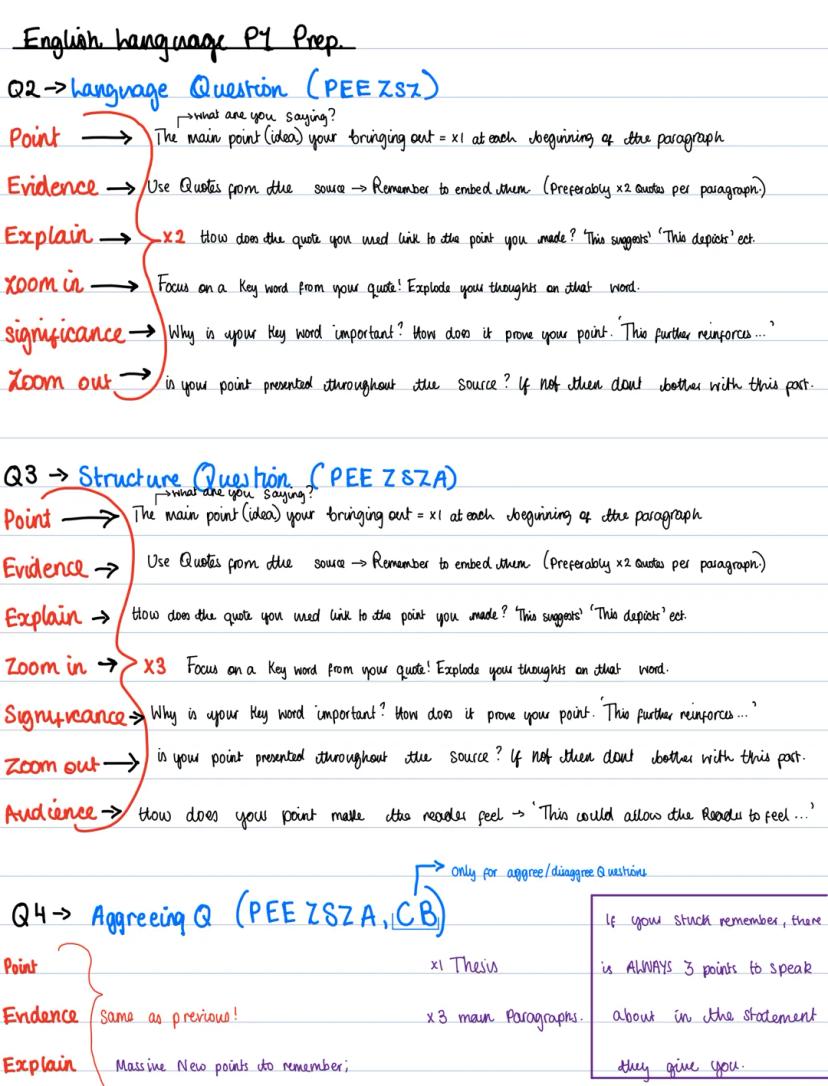 English Language P1 Prep.
Q2 → Language Question (PEE ZSZ)
→ what are you saying?
Point → The main point (idea) your bringing out = x1 at each beginning of the paragraph
Evidence → Use Quotes from the source → Remember to embed them (Preferably x2 Quotes per paragraph.)
Explain → x2 How does the quote you used link to the point you made? 'This suggests' 'This depicts' ect.
Zoom in → Focus on a Key word from your quote! Explode your thoughts on that word.
significance → Why is your Key word important? How does it prove your point. 'This further reinforces...'
Zoom out → is your point presented throughout the source? If not then dont bother with this part.
Q3 → Structure Question (PEE ZSZA)
→ what are you saying?
Point → The main point (idea) your bringing out = x1 at each beginning of the paragraph
Evidence → Use Quotes from the source → Remember to embed them (Preferably x2 Quotes per paragraph.)
Explain → How does the quote you used link to the point you made? 'This suggests' 'This depicts' ect.
Zoom in → x3 Focus on a Key word from your quote! Explode your thoughts on that word.
Significance → Why is your Key word important? How does it prove your point. 'This further reinforces...'
Zoom out → is your point presented throughout the source? If not then dont bother with this part.
Audience → How does your point make the reader feel → 'This could allow the Reader to feel ...'
→ only for aggree/disaggree Questions
Q4 → Aggreeing Q (PEE ZSZA, CB)
If your stuck remember, there
is ALWAYS 3 points to speak
about in the statement
they give you.
Point x1 Thesis
Evidence Same as previous! x3 main Paragraphs.
Explain Massive New points to remember;